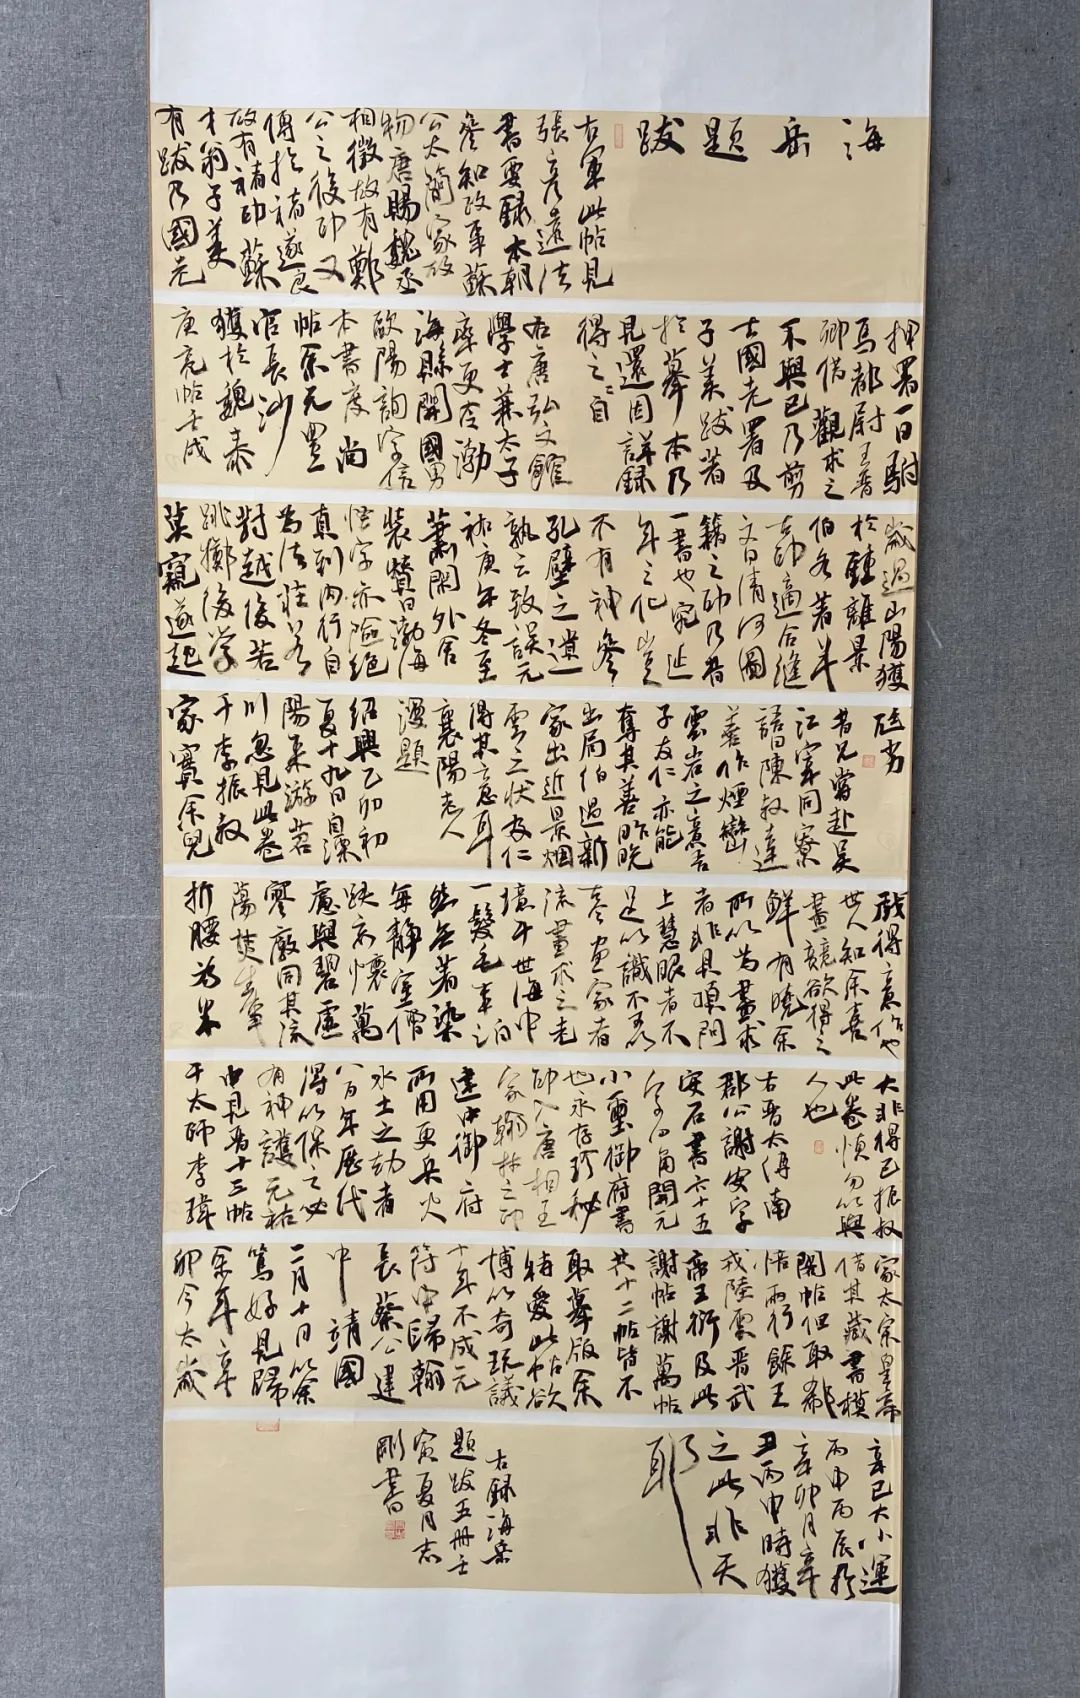 海岳題跋
右軍此帖見
張彦遠法
書要録本朝
參知政事蘇
公太簡家故
物唐賜魏丞
相徵故有鄭
公之後印又
傳於褚遂良
故有褚印蘇
才翁子美
有跋乃國老
押署一日駙
馬都尉王晉
卿借觀求之
不與已乃剪
去國老署及
子美跋著
於摹本乃
見還因詳録
得之自
右唐弘文館
學士兼太子
率更令渤
海縣開國男
歐陽詢字信
本書度尚
帖余元豐
官長沙
獲於魏泰
庾亮帖壬戌
歲過山陽獲
於鍾離景
伯各著半
古印適合縫
文曰清河圖
籍之印乃昔
一書也宛延
年之化豈
不有神參
孔壁之遺
孰云致誤元
祐庚午冬至
蕭閑外舍
裝贊曰渤海
悟字亦險絕
真到内行自
為法莊若
對越後若
跳擲後學
莫窺遂起
尫劣
昔兄嘗赴吴
江宰同寮
語曰陳叔達
善作煙巒
雲岩之意吾
子友仁亦能
奪其善昨晚
出局伯過新
家出近景烟
雲三狀及仁
得其意耳
襄陽老人
漫題
紹興乙卯初
夏十九日自溧
陽來游苕
川忽見此卷
于李振叔
家實余兒
戲得意作也
世人知余喜
畫競欲得之
鮮有曉余
所以為畫求
者非具頂門
上慧眼者不
足以識不可以
古今畫家者
流畫求之老
境于世海中
一髮毛事泊
然無著染
每靜室僧
趺忘懷萬
慮與碧虛
寥廓同其流
蕩焚生事
折腰為米
大非得已振叔
此卷慎勿以與
人也
右晉太傅南
郡公謝安字
安石書六十五
字四角開元
小璽御府書
也永存珍秘
印入唐相王
家翰林之印
建中御府
所用更兵火
水土之劫者
八百年歷代
得以保之必
有神護元祐
中見晉十三帖
于太師李瑋
家太宗皇帝
借其藏書模
閣帖但取郗
愔兩行餘王
戎陸雲晉武
帝王衍及此
謝帖謝萬帖
共十二帖皆不
取摹版余
特愛此帖欲
博以奇玩議
十年不成元
符中歸翰
長蔡公建
中靖國
二月十日以余
篤好見歸
余年辛
卯今太歲
辛巳大小運
丙申丙辰於
辛卯月辛
丑丙申時獲
之此非天
耶
右録海岳
題跋五冊壬
寅夏月志
剛書